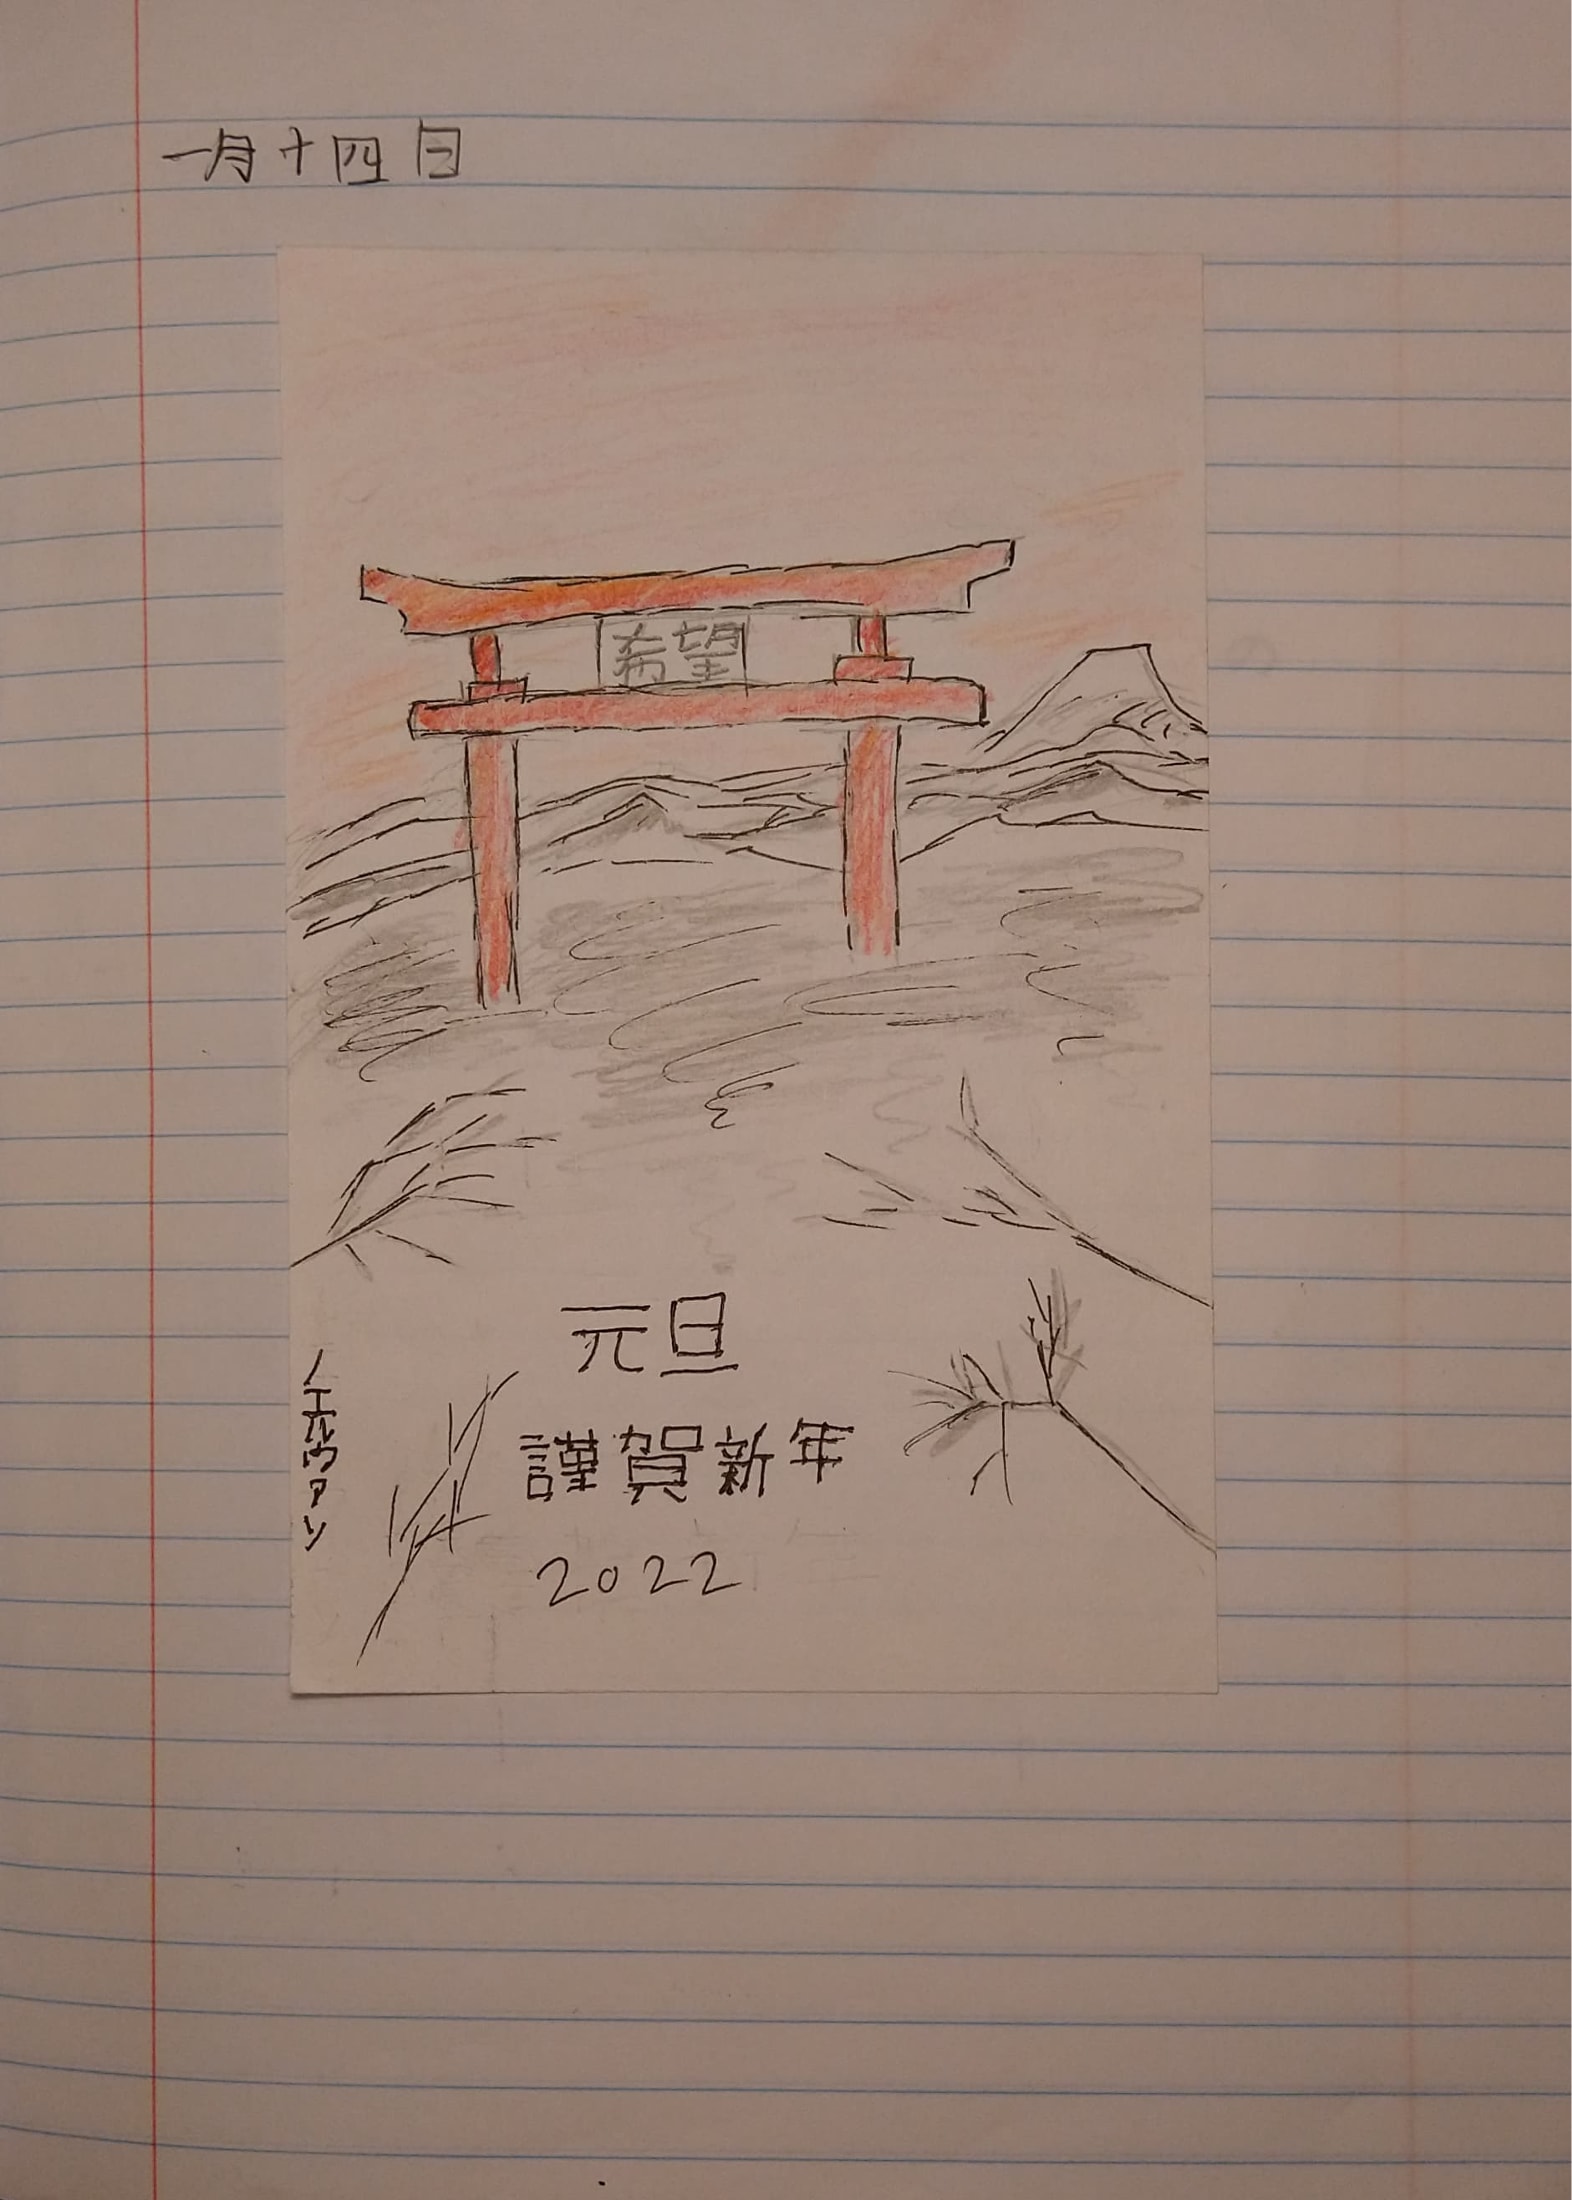 一月十四日
希望
元旦
謹賀新年
2022
ノエルウアン